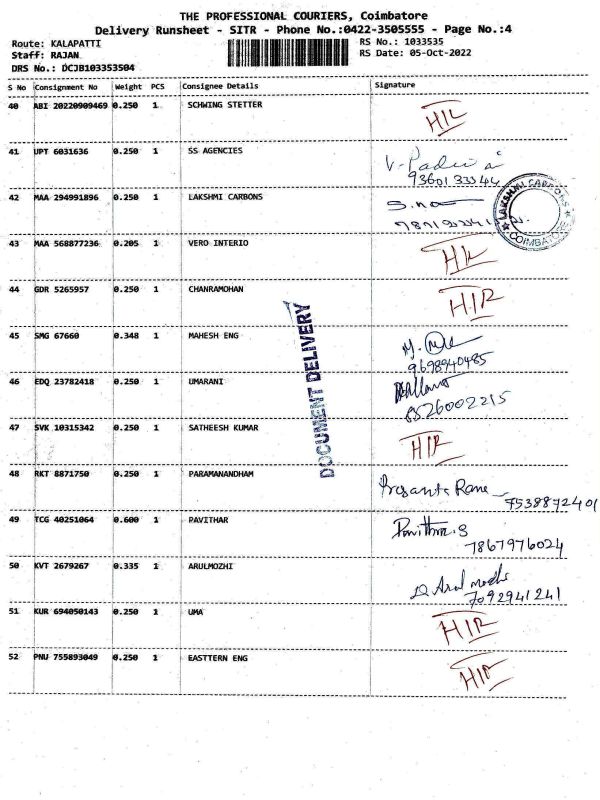 THE PROFESSIONAL COURIERS, Coimbatore
Delivery Runsheet - SITR - Phone No.:0422-3505555 - Page No.:4
Route: KALAPATTI RS No.: 1033535
Staff: RAJAN RS Date: 05-Oct-2022
DRS No.: DCJB103353504
S No Consignment No Weight PCS Consignee Details Signature
40 ABI 20220909469 0.250 1 SCHWING STETTER
41 UPT 6031636 0.250 1 SS AGENCIES
9360133544
42 MAA 294991896 0.250 1 LAKSHMI CARBONS
LAKSHMI CARBONS
COIMBATORE
43 MAA 568877236 0.205 1 VERO INTERIO
44 GDR 5265957 0.250 1 CHANRAMOHAN HIR
45 SMG 67660 0.348 1 MAHESH ENG
9698940485
DOCUMENT DELIVERY
46 EDQ 23782418 0.250 1 UMARANI
8526002215
47 SVK 10315342 0.250 1 SATHEESH KUMAR HIR
48 RKT 8871750 0.250 1 PARAMANANDHAM
7538872401
49 TCG 40251064 0.600 1 PAVITHAR Pavithra.S
7867976024
50 KVT 2679267 0.335 1 ARULMOZHI
7092941241
51 KUR 694050143 0.250 1 UMA HIR
52 PNU 755893049 0.250 1 EASTTERN ENG HIR